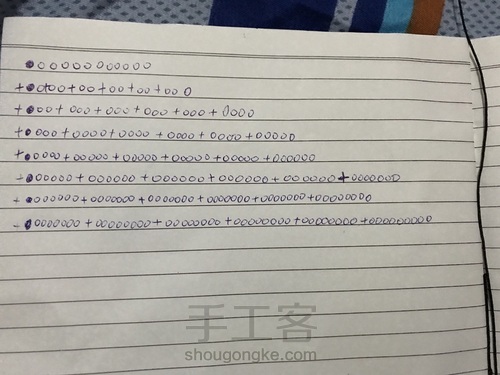 ●00000000000
+●0+00+00+00+00+000
+●00+000+000+000+000+0000
+●000+0000+0000+0000+0000+00000
+●0000+00000+00000+00000+00000+000000
+●00000+000000+000000+000000+000000+0000000
+●000000+0000000+0000000+0000000+0000000+00000000
+●0000000+00000000+00000000+00000000+00000000+000000000
手工客
shougongke.com